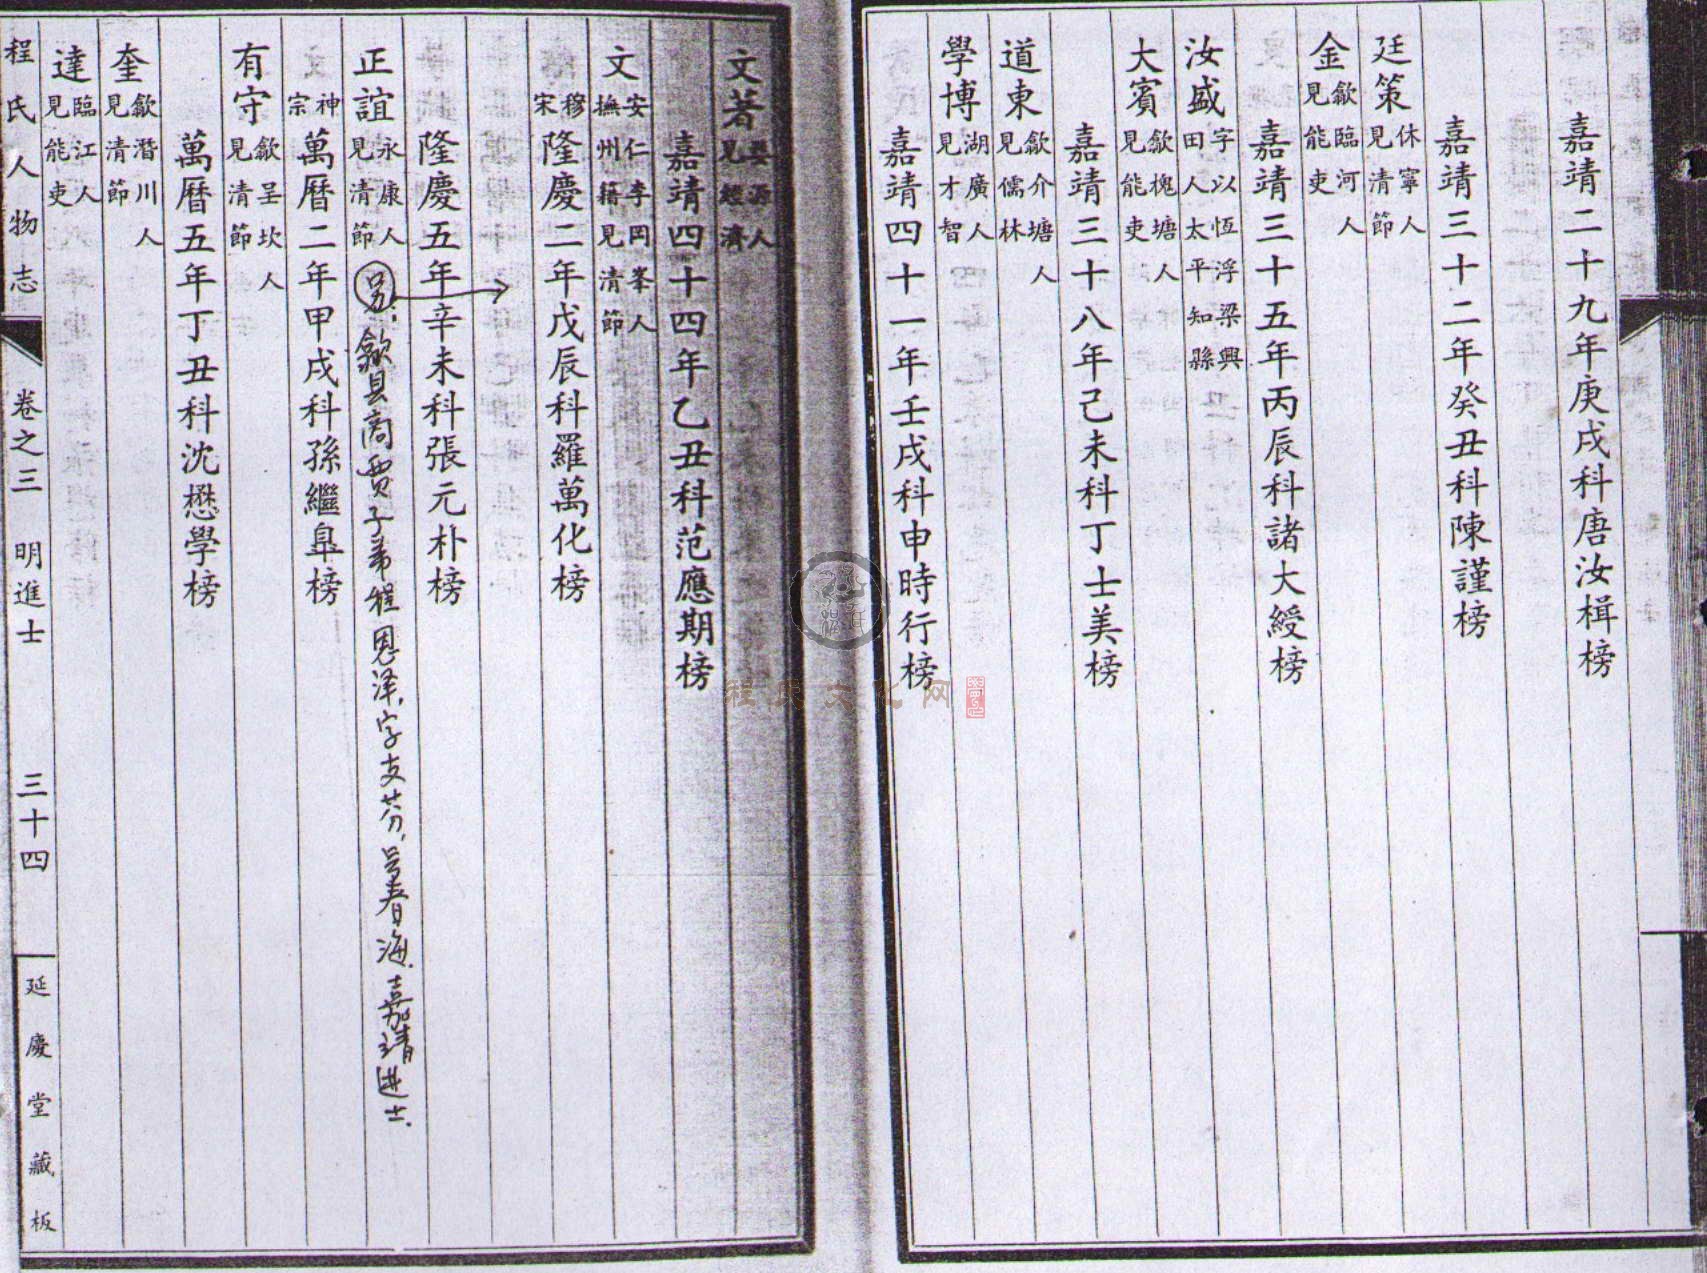 嘉靖二十九年庚戌科唐汝楫榜
嘉靖三十二年癸丑科陳謹榜
廷策休寧人見清節
金歙臨河人見能吏
嘉靖三十五年丙辰科諸大綬榜
汝盛字以恆浮梁興田人太平知縣
大賓歙槐塘人見能吏
嘉靖三十八年己未科丁士美榜
道東歙介塘人見儒林
學博湖廣人見才智
嘉靖四十一年壬戌科申時行榜
文著婺源人見經濟
嘉靖四十四年乙丑科范應期榜
文安仁李岡峯人撫州籍見清節
穆宗隆慶二年戊辰科羅萬化榜
隆慶五年辛未科張元朴榜
正誼永康人見清節
另：歙县商贾子弟程恩泽,字支芬,号春海.嘉靖进士.
神宗萬曆二年甲戌科孫繼臯榜
有守歙呈坎人見清節
萬曆五年丁丑科沈懋學榜
奎歙潛川人見清節
達臨江人見能吏
程氏人物志 卷之三 明進士 三十四 延慶堂藏板
程氏文化网